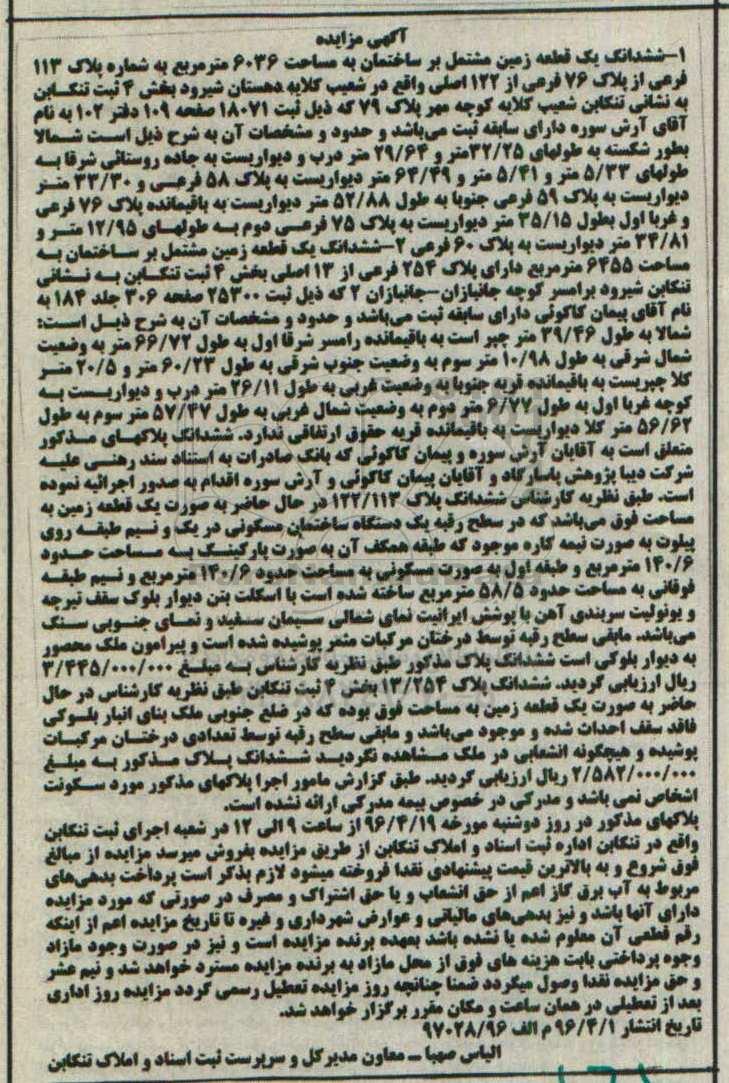 آگهی مزایده
۱-ششدانگ یک قطعه زمین مشتمل بر ساختمان به مساحت ۶۰۳۶ مترمربع به شماره پلاک ۱۱۳
فرعی از پلاک ۷۶ فرعی از ۱۲۲ اصلی واقع در شعیب کلایه دهستان شیرود بخش ۴ ثبت تنکابن
به نشانی تنکابن شعیب کلایه کوچه مهر پلاک ۷۹ که ذیل ثبت ۱۸۰۷۱ صفحه ۱۰۹ دفتر ۱۰۲ به نام
آقای آرش سوره دارای سابقه ثبت می‌باشد و حدود و مشخصات آن به شرح ذیل است شمالا
بطور شکسته به طولهای ۳۲/۲۵متر و ۲۹/۶۴ متر درب و دیواریست به جاده روستائی شرقا به
طولهای ۵/۳۳ متر و ۵/۴۱ متر و ۶۴/۴۹ متر دیواریست به پلاک ۵۸ فرعی و ۳۳/۳۰ متر
دیواریست به پلاک ۵۹ فرعی جنوبا به طول ۵۲/۸۸ متر دیواریست به باقیمانده پلاک ۷۶ فرعی
و غربا اول بطول ۳۵/۱۵ متر دیواریست به پلاک ۷۵ فرعی دوم به طولهای ۱۲/۹۵ متر و
۳۴/۸۱ متر دیواریست به پلاک ۶۰ فرعی ۲-ششدانگ یک قطعه زمین مشتمل بر ساختمان به
مساحت ۶۴۵۵ مترمربع دارای پلاک ۲۵۴ فرعی از ۱۳ اصلی بخش ۴ ثبت تنکابن به نشانی
تنکابن شیرود برامسر کوچه جانبازان-جانبازان ۲ که ذیل ثبت ۲۵۳۰۰ صفحه ۳۰۶ جلد ۱۸۴ به
نام آقای پیمان کاکوئی دارای سابقه ثبت می‌باشد و حدود و مشخصات آن به شرح ذیل است:
شمالا به طول ۳۹/۴۶ متر چپر است به باقیمانده رامسر شرقا اول به طول ۶۶/۷۲ متر به وضعیت
شمال شرقی به طول ۱۰/۹۸ متر سوم به وضعیت جنوب شرقی به طول ۶۰/۲۳ متر و ۲۰/۵ متر
کلا چپریست به باقیمانده قریه جنوبا به وضعیت غربی به طول ۲۶/۱۱ متر درب و دیواریست به
کوچه غربا اول به طول ۶/۷۷ متر دوم به وضعیت شمال غربی به طول ۵۷/۴۷ متر سوم به طول
۵۶/۶۲ متر کلا دیواریست به باقیمانده قریه حقوق ارتفاقی ندارد. ششدانگ پلاکهای مذکور
متعلق است به آقایان آرش سوره و پیمان کاکوئی که بانک صادرات به استناد سند رهنی علیه
شرکت دیبا پژوهش پاسارگاد و آقایان پیمان کاکوئی و آرش سوره اقدام به صدور اجرائیه نموده
است. طبق نظریه کارشناس ششدانگ پلاک ۱۲۲/۱۱۳ در حال حاضر به صورت یک قطعه زمین به
مساحت فوق می‌باشد که در سطح رقبه یک دستگاه ساختمان مسکونی در یک و نیم طبقه روی
پیلوت به صورت نیمه کاره موجود که طبقه همکف آن به صورت پارکینگ به مساحت حدود
۱۴۰/۶ مترمربع و طبقه اول به صورت مسکونی به مساحت حدود ۱۴۰/۶ مترمربع و نیم طبقه
فوقانی به مساحت حدود ۵۸/۵ مترمربع ساخته شده است با اسکلت بتن دیوار بلوک سقف تیرچه
و یونولیت سربندی آهن با پوشش ایرانیت نمای شمالی سیمان سفید و نمای جنوبی سنگ
می‌باشد. مابقی سطح رقبه توسط درختان مرکبات مثمر پوشیده شده است و پیرامون ملک محصور
به دیوار بلوکی است ششدانگ پلاک مذکور طبق نظریه کارشناس به مبلغ ۳/۴۴۵/۰۰۰/۰۰۰
ریال ارزیابی گردید. ششدانگ پلاک ۱۳/۲۵۴ بخش ۴ ثبت تنکابن طبق نظریه کارشناس در حال
حاضر به صورت یک قطعه زمین به مساحت فوق بوده که در ضلع جنوبی ملک بنای انبار بلوکی
فاقد سقف احداث شده و موجود می‌باشد و مابقی سطح رقبه توسط تعدادی درختان مرکبات
پوشیده و هیچگونه انشعابی در ملک مشاهده نگردید ششدانگ پلاک مذکور به مبلغ
۲/۵۸۲/۰۰۰/۰۰۰ ریال ارزیابی گردید. طبق گزارش مامور اجرا پلاکهای مذکور مورد سکونت
اشخاص نمی باشد و مدرکی در خصوص بیمه مدرکی ارائه نشده است.
پلاکهای مذکور در روز دوشنبه مورخه ۹۶/۴/۱۹ از ساعت ۹ الی ۱۲ در شعبه اجرای ثبت تنکابن
واقع در تنکابن اداره ثبت اسناد و املاک تنکابن از طریق مزایده بفروش میرسد مزایده از مبالغ
فوق شروع و به بالاترین قیمت پیشنهادی نقدا فروخته میشود لازم بذکر است پرداخت بدهی‌های
مربوط به آب برق گاز اعم از حق انشعاب و یا حق اشتراک و مصرف در صورتی که مورد مزایده
دارای آنها باشد و نیز بدهی‌های مالیاتی و عوارض شهرداری و غیره تا تاریخ مزایده اعم از اینکه
رقم قطعی آن معلوم شده یا نشده باشد بعهده برنده مزایده است و نیز در صورت وجود مازاد
وجوه پرداختی بابت هزینه های فوق از محل مازاد به برنده مزایده مسترد خواهد شد و نیم عشر
و حق مزایده نقدا وصول میگردد ضمنا چنانچه روز مزایده تعطیل رسمی گردد مزایده روز اداری
بعد از تعطیلی در همان ساعت و مکان مقرر برگزار خواهد شد.
تاریخ انتشار ۹۶/۴/۱ م الف ۹۷۰۲۸/۹۶
الیاس صهبا – معاون مدیرکل و سرپرست ثبت اسناد و املاک تنکابن